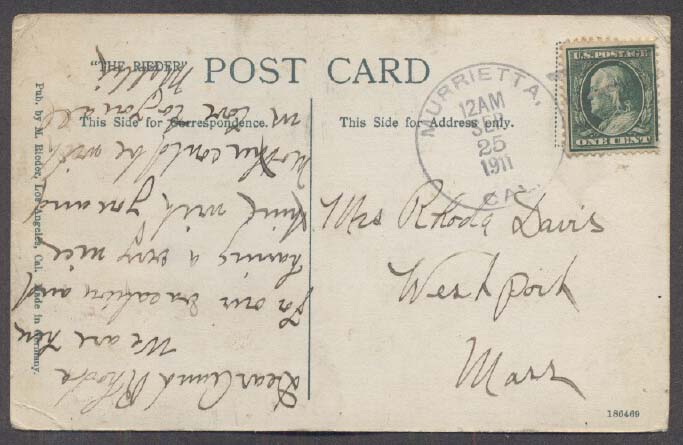 "THE RIEDER" POST CARD
This Side for Correspondence.
This Side for Address only.
Pub. by M. Rieder, Los Angeles, Cal. Made in Germany.
U.S. POSTAGE
ONE CENT
MURRIETTA,
12AM
SEP
25
1911
CAL.
Mrs Rhoda Davis
Westport
Mass
Dear Aunt Rhoda
We are here
for our vacation and
having a very nice
time wish you and
Mother could be with
us Love to you all
Mollie
186469